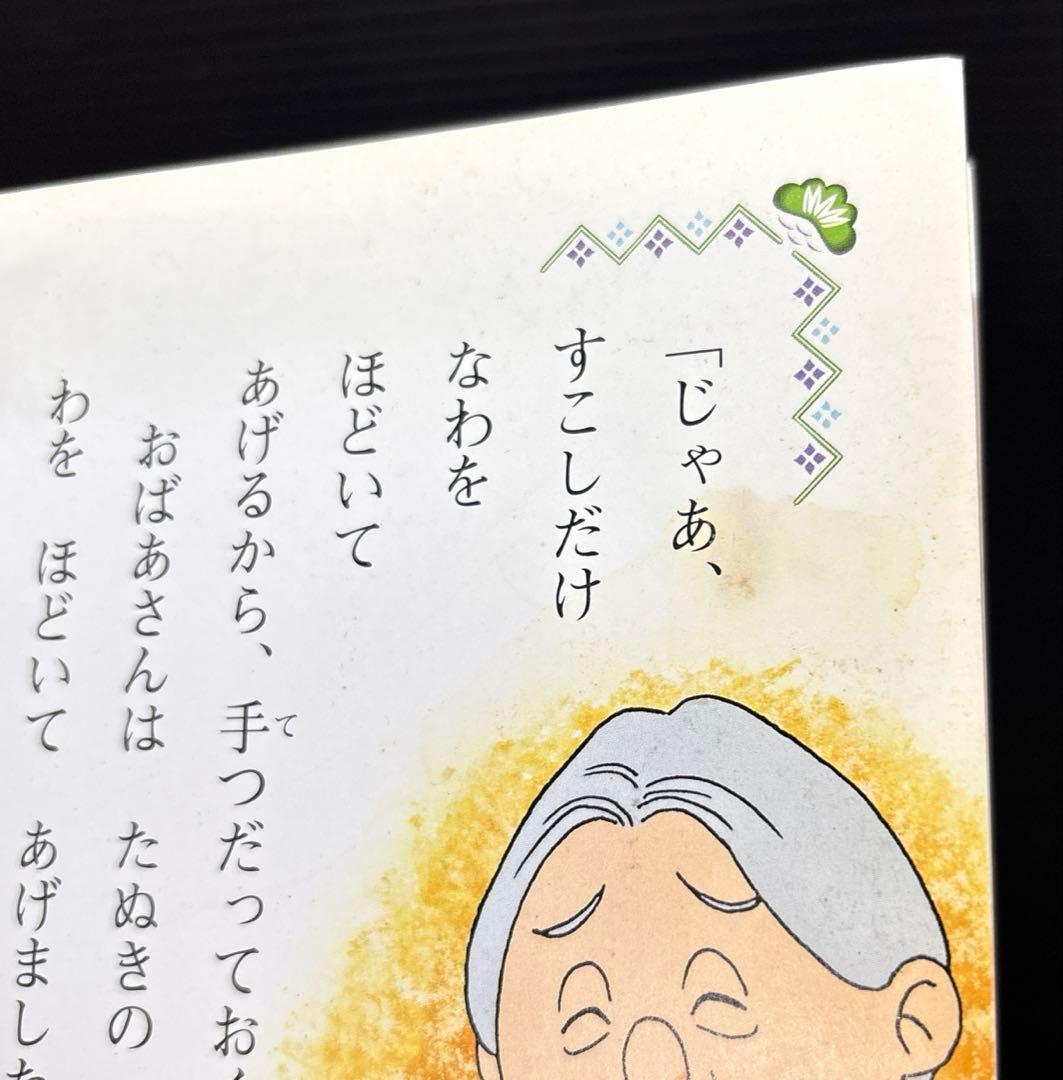 「じゃあ、
すこしだけ
なわを
ほどいて
あげるから、手つだってお
て
おばあさんは たぬきの
わを ほどいて あげまし